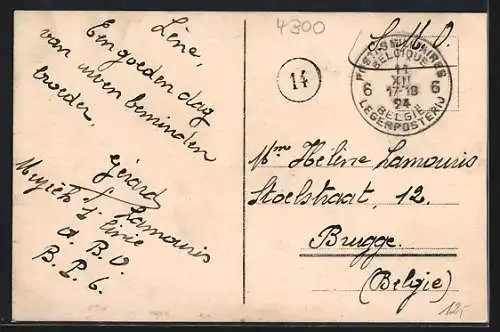 4300
Lène,
Een goeden dag
van uwen beminden
broeder,
Gérard
Lamouris
Muziek 5e linie
A. B. O.
B. P. 6.
14
S. M.
POSTES MILITAIRES
BELGIQUE
11
XII
17-18
24
6 6
BELGIE
LEGERPOSTERIJ
Mme Hélène Lamouris
Stoelstraat, 12.
Brugge.
(Belgie)
12,-